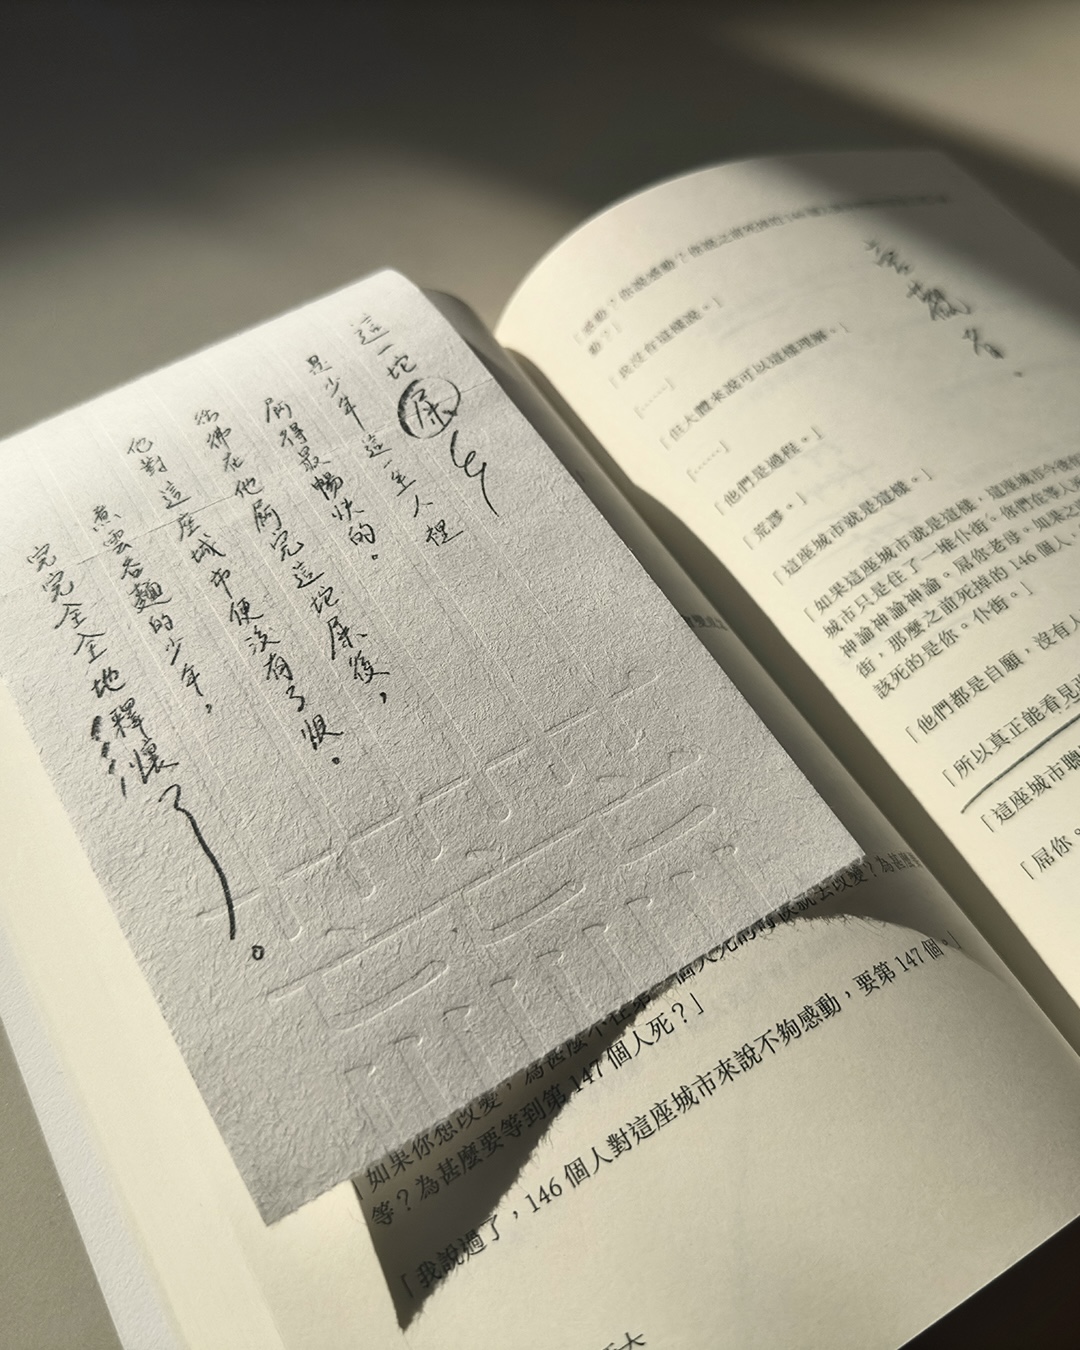 這一坨屎
是少年這一生人裡
屙得最暢快的。
彷彿在他屙完這坨屎後，
他對這座城市便沒有了恨。
煮雲吞麵的少年，
完完全全地釋懷了。
「如果你想改變，為甚麼不在第一個人死的時候就去改變？為甚麼要
等？為甚麼要等到第147個人死？」
「我說過了，146個人對這座城市來說不夠感動，要第147個。」
觀者。
「感動？你說感動？你說之前死掉的146個
動？」
「我沒有這樣說。」
「⋯⋯」
「但大體來說可以這樣理解。」
「⋯⋯」
「他們是過程。」
「荒謬。」
「這座城市就是這樣。」
「如果這座城市就是這樣，這座城市今後
城市只是住了一堆仆街。你們在等人
神諭神諭神諭。屌你老母。如果之
街，那麼之前死掉的146個人，
該死的是你。仆街。」
「他們都是自願，沒有人
「所以真正能看見
「這座城市聽
「屌你。